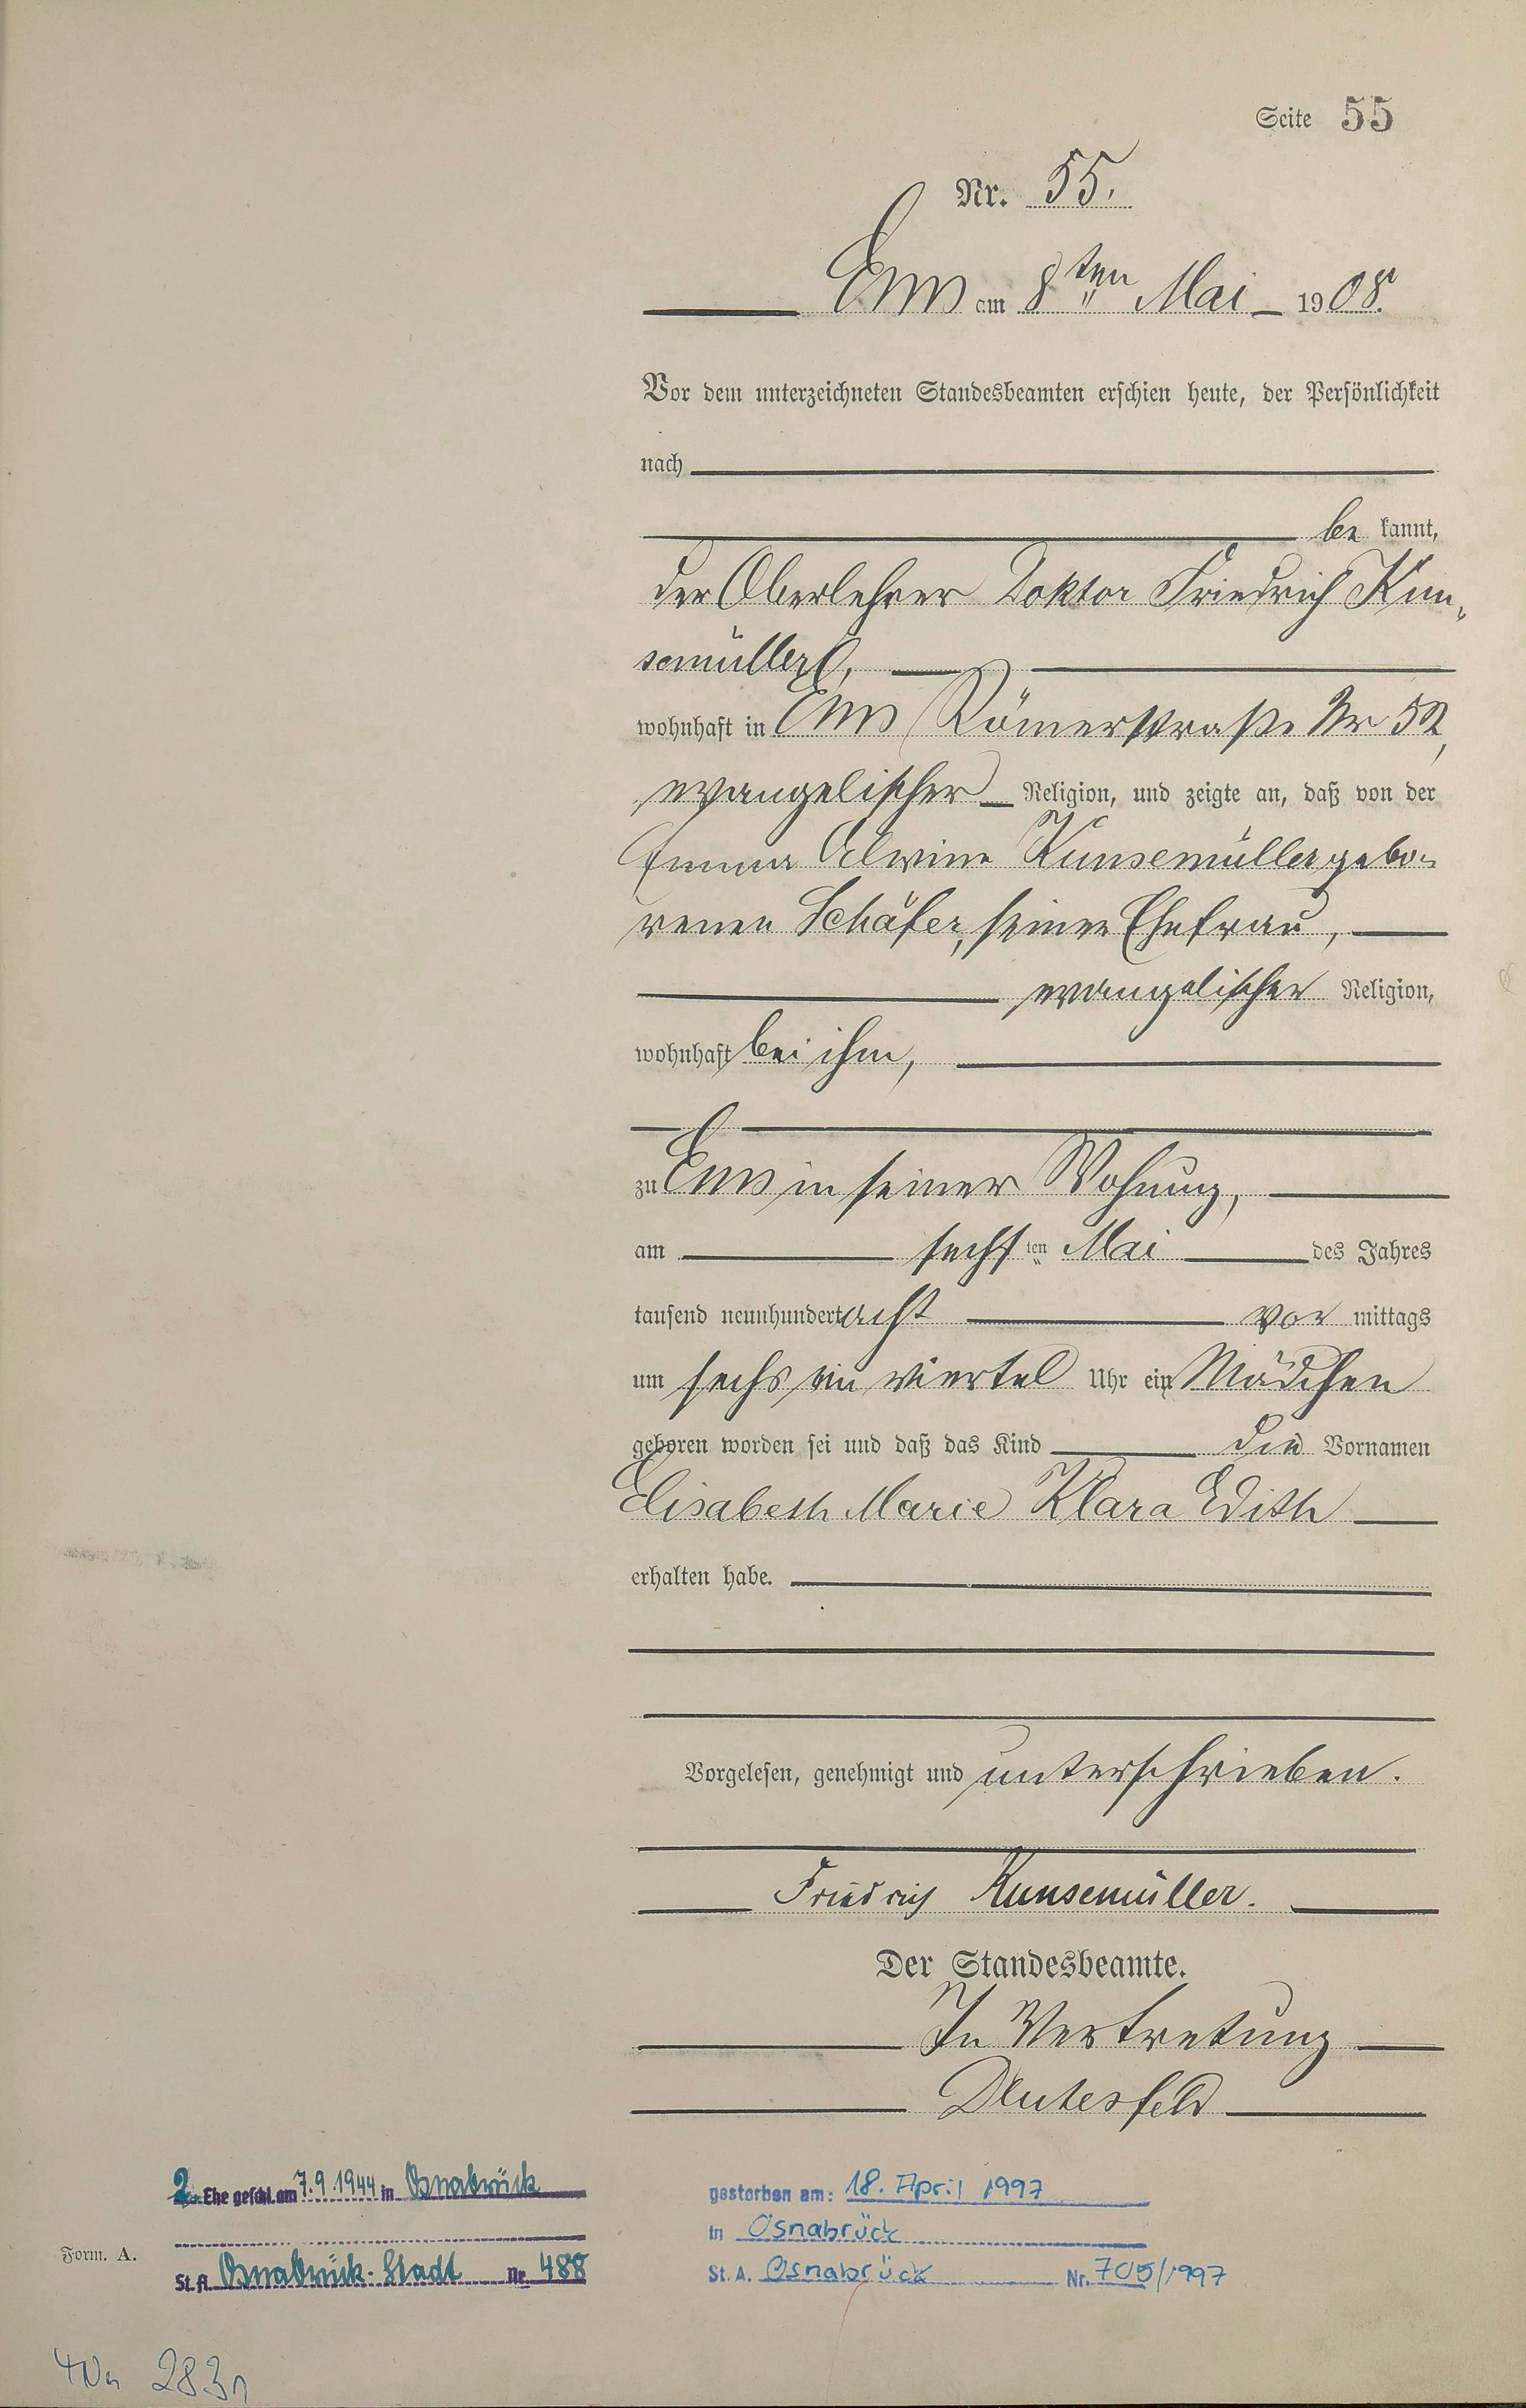 Seite 55
Nr. 55.
Ems am 8ten Mai 1908.
Vor dem unterzeichneten Standesbeamten erschien heute, der Persönlichkeit
nach
be kannt,
der Oberlehrer Doktor Friedrich Kun-
semüller,
wohnhaft in Ems Römerstraße Nr 52,
evangelischer Religion, und zeigte an, daß von der
Emma Alwine Kunsemüller gebo-
renen Schäfer, seiner Ehefrau,
evangelischer Religion,
wohnhaft bei ihm,
zu Ems in seiner Wohnung,
am sechsten Mai des Jahres
tausend neunhundert acht vor mittags
um sechs ein viertel Uhr ein Mädchen
geboren worden sei und daß das Kind die Vornamen
Elisabeth Marie Klara Edith
erhalten habe.
Vorgelesen, genehmigt und unterschrieben.
Friedrich Kunsemüller.
Der Standesbeamte.
In Vertretung
2. Ehe geschl. am 7.9.1944 in Osnabrück
St.A. Osnabrück-Stadt Nr. 488
gestorben am: 18. April 1997
in Osnabrück
St. A. Osnabrück Nr. 705/1997
Form. A.